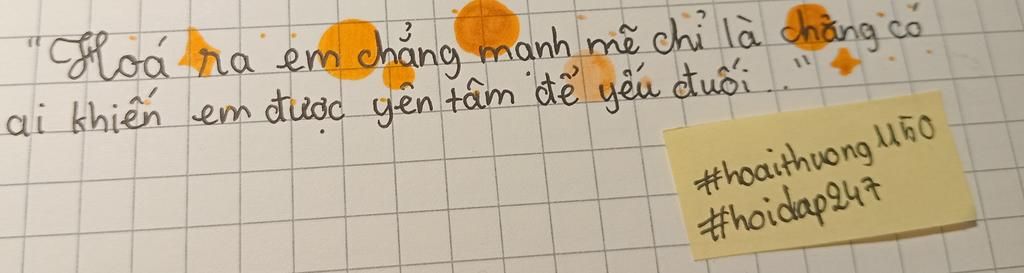 "Hoá ra em chẳng manh mẽ chỉ là chẳng có
ai khiến em được yên tâm để yếu đuối..."
#hoaithuong1150
#hoidap247